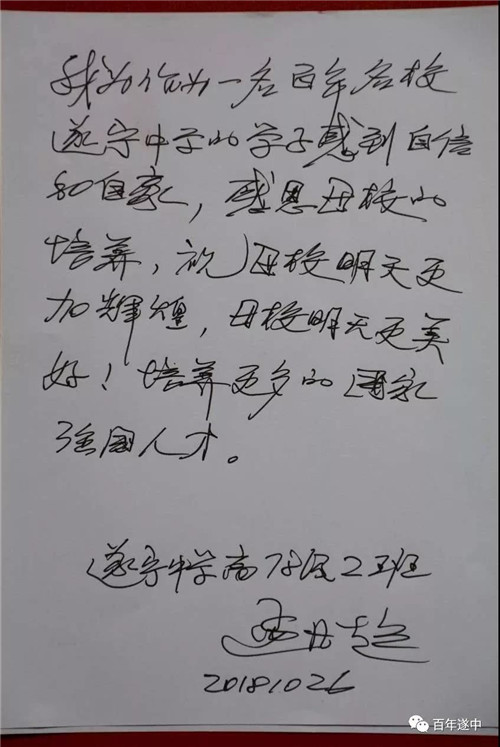 我为作为一名百年名校
遂宁中学的学子感到自信
和自豪，感恩母校的
培养，祝母校明天更
加辉煌，母校明天更美
好！培养更多的国家
强国人才。
遂宁中学高78级2班
20181026
百年遂中